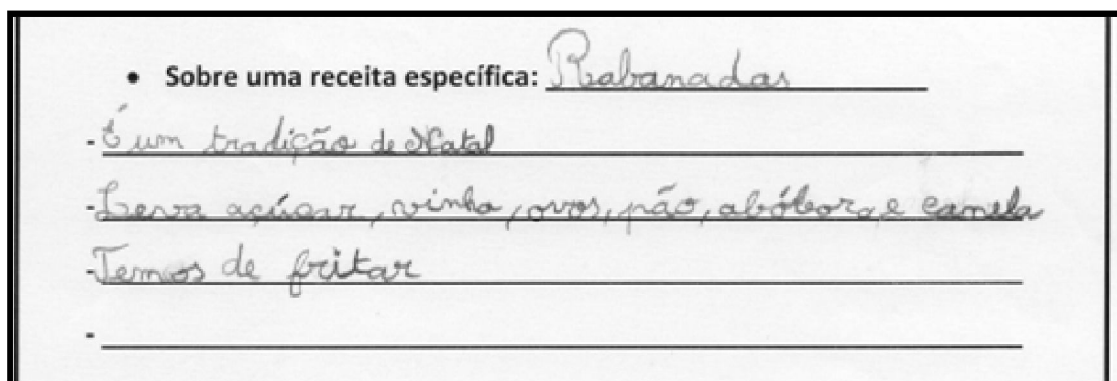 • Sobre uma receita específica: Rabanadas
- É um tradição de Natal
- Leva açúcar, vinho, ovos, pão, abóbora, e canela
- Temos de fritar
-